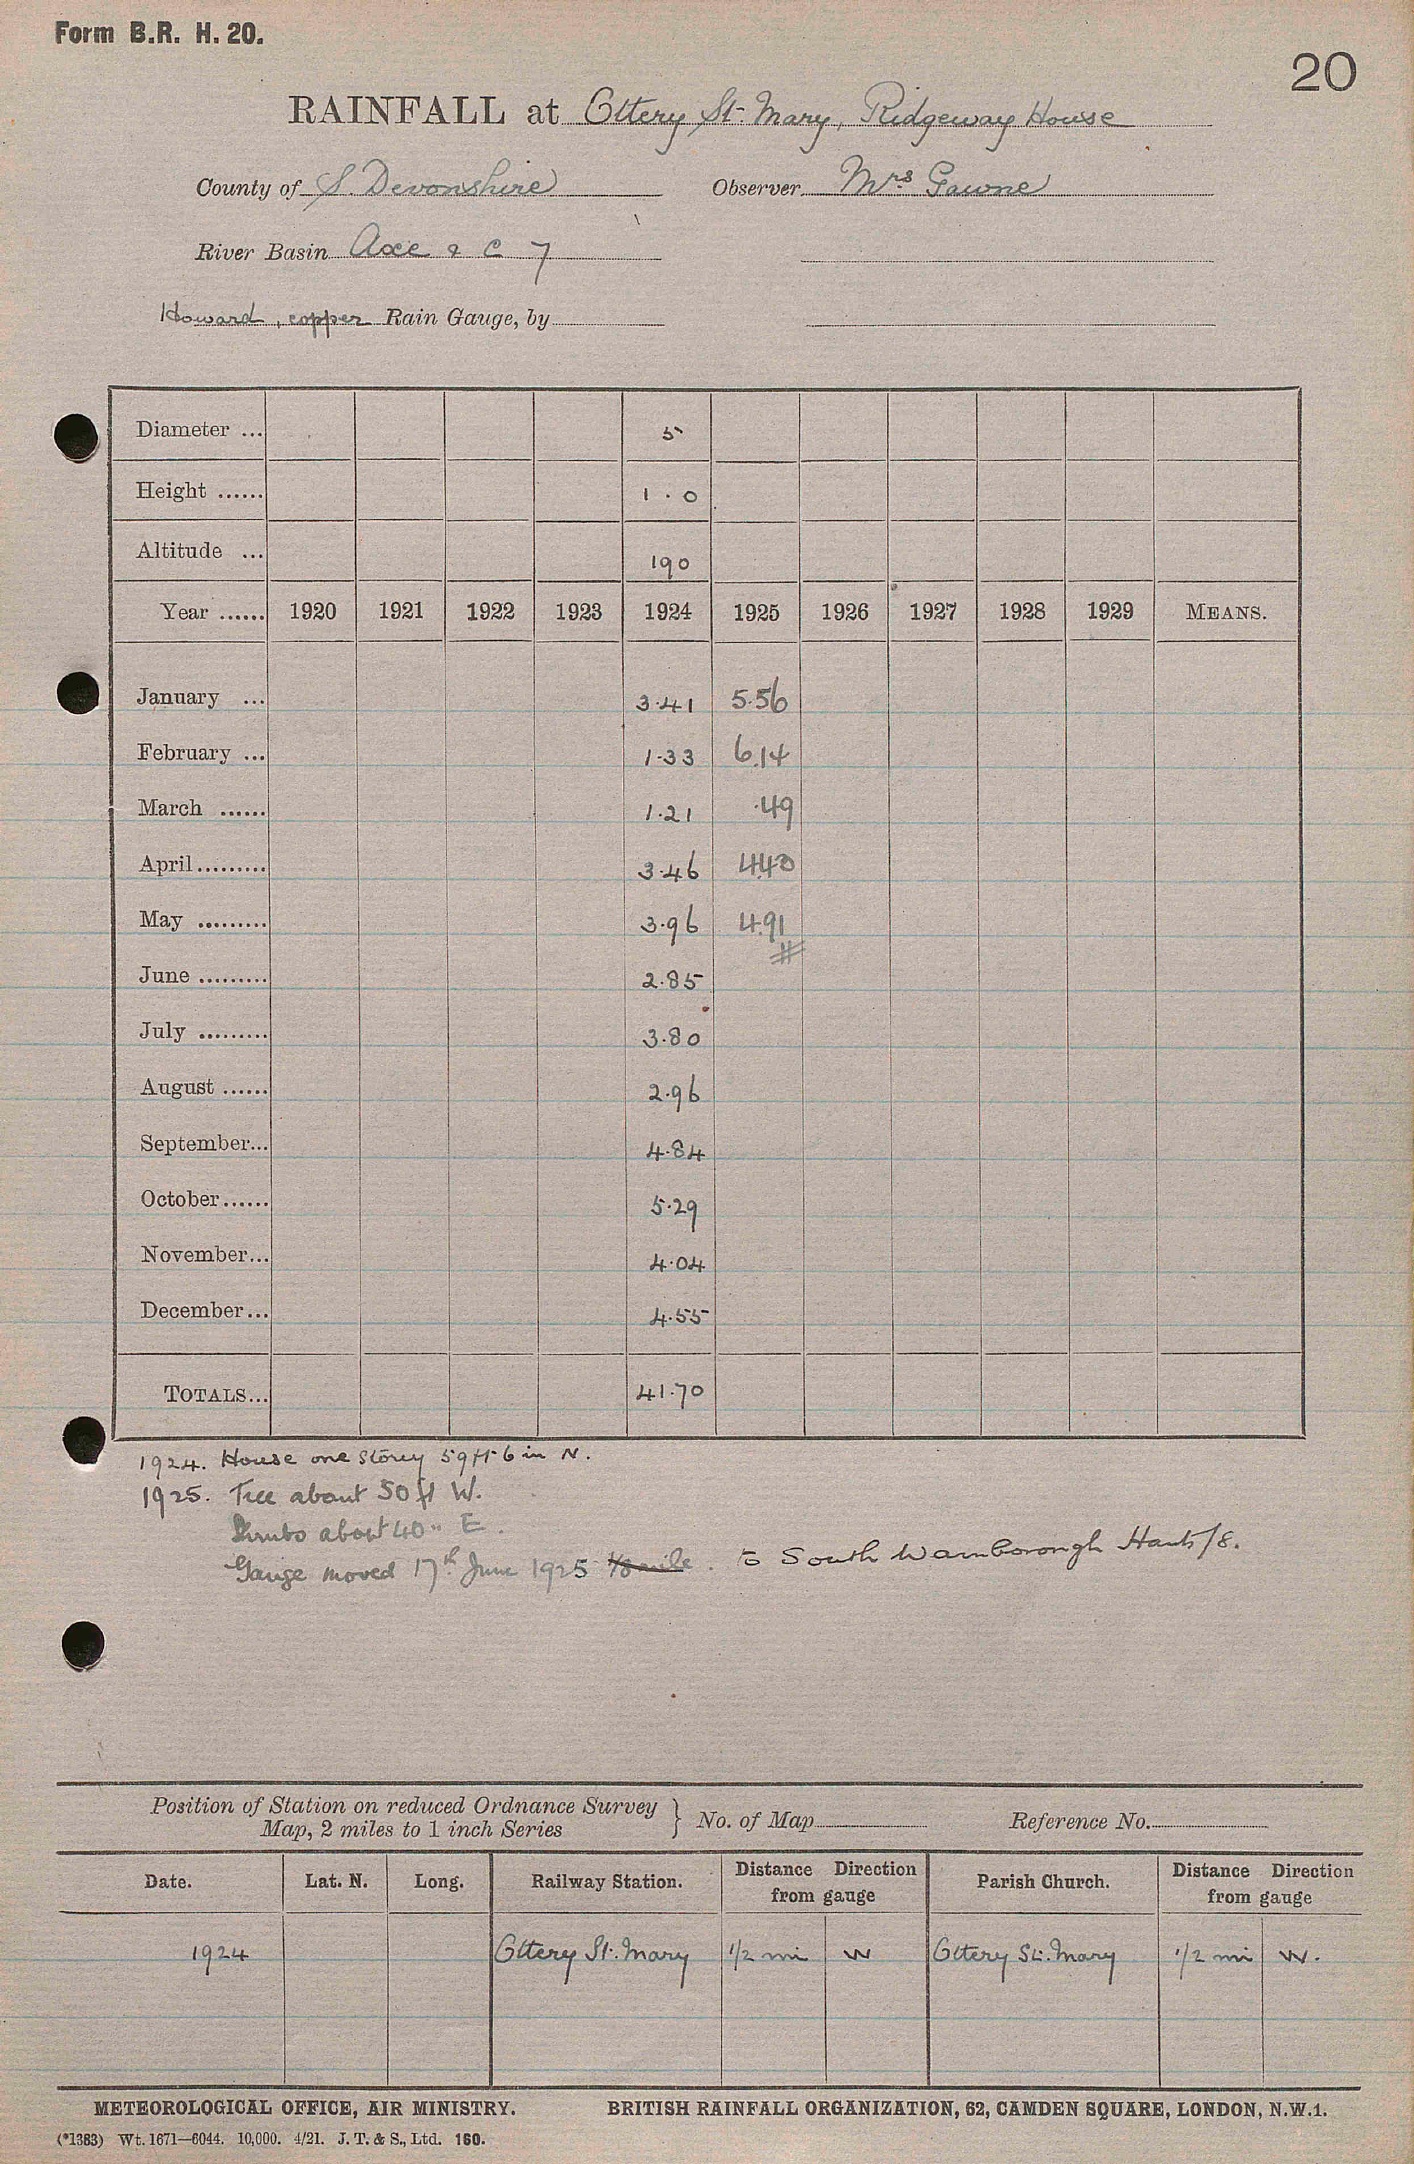 Form B.R. H. 20.
20
RAINFALL at Ottery St. Mary, Ridgeway House
County of S. Devonshire Observer Mrs Gawne
River Basin Axe & C 7
Howard, copper Rain Gauge, by
Diameter ... 5
Height ...... 1.0
Altitude ... 190
Year ...... 1920 1921 1922 1923 1924 1925 1926 1927 1928 1929 MEANS.
January ... 3.41 5.56
February ... 1.33 6.14
March ...... 1.21 .49
April......... 3.46 4.40
May ......... 3.96 4.91
June ......... 2.85
July ......... 3.80
August ...... 2.96
September... 4.84
October...... 5.29
November... 4.04
December... 4.55
TOTALS... 41.70
1924. House one storey 59 ft 6 in N.
1925. Tree about 50 ft W.
Shrubs about 40 " E.
Gauge moved 17th June 1925 1/8 mile. to South Warnborough Hants/8.
Position of Station on reduced Ordnance Survey
Map, 2 miles to 1 inch Series } No. of Map Reference No.
Date. Lat. N. Long. Railway Station. Distance Direction from gauge Parish Church. Distance Direction from gauge
1924 Ottery St. Mary 1/2 mi W Ottery St. Mary 1/2 mi W.
METEOROLOGICAL OFFICE, AIR MINISTRY. BRITISH RAINFALL ORGANIZATION, 62, CAMDEN SQUARE, LONDON, N.W.1.
(*1383) Wt. 1671—6044. 10,000. 4/21. J. T. & S., Ltd. 160.